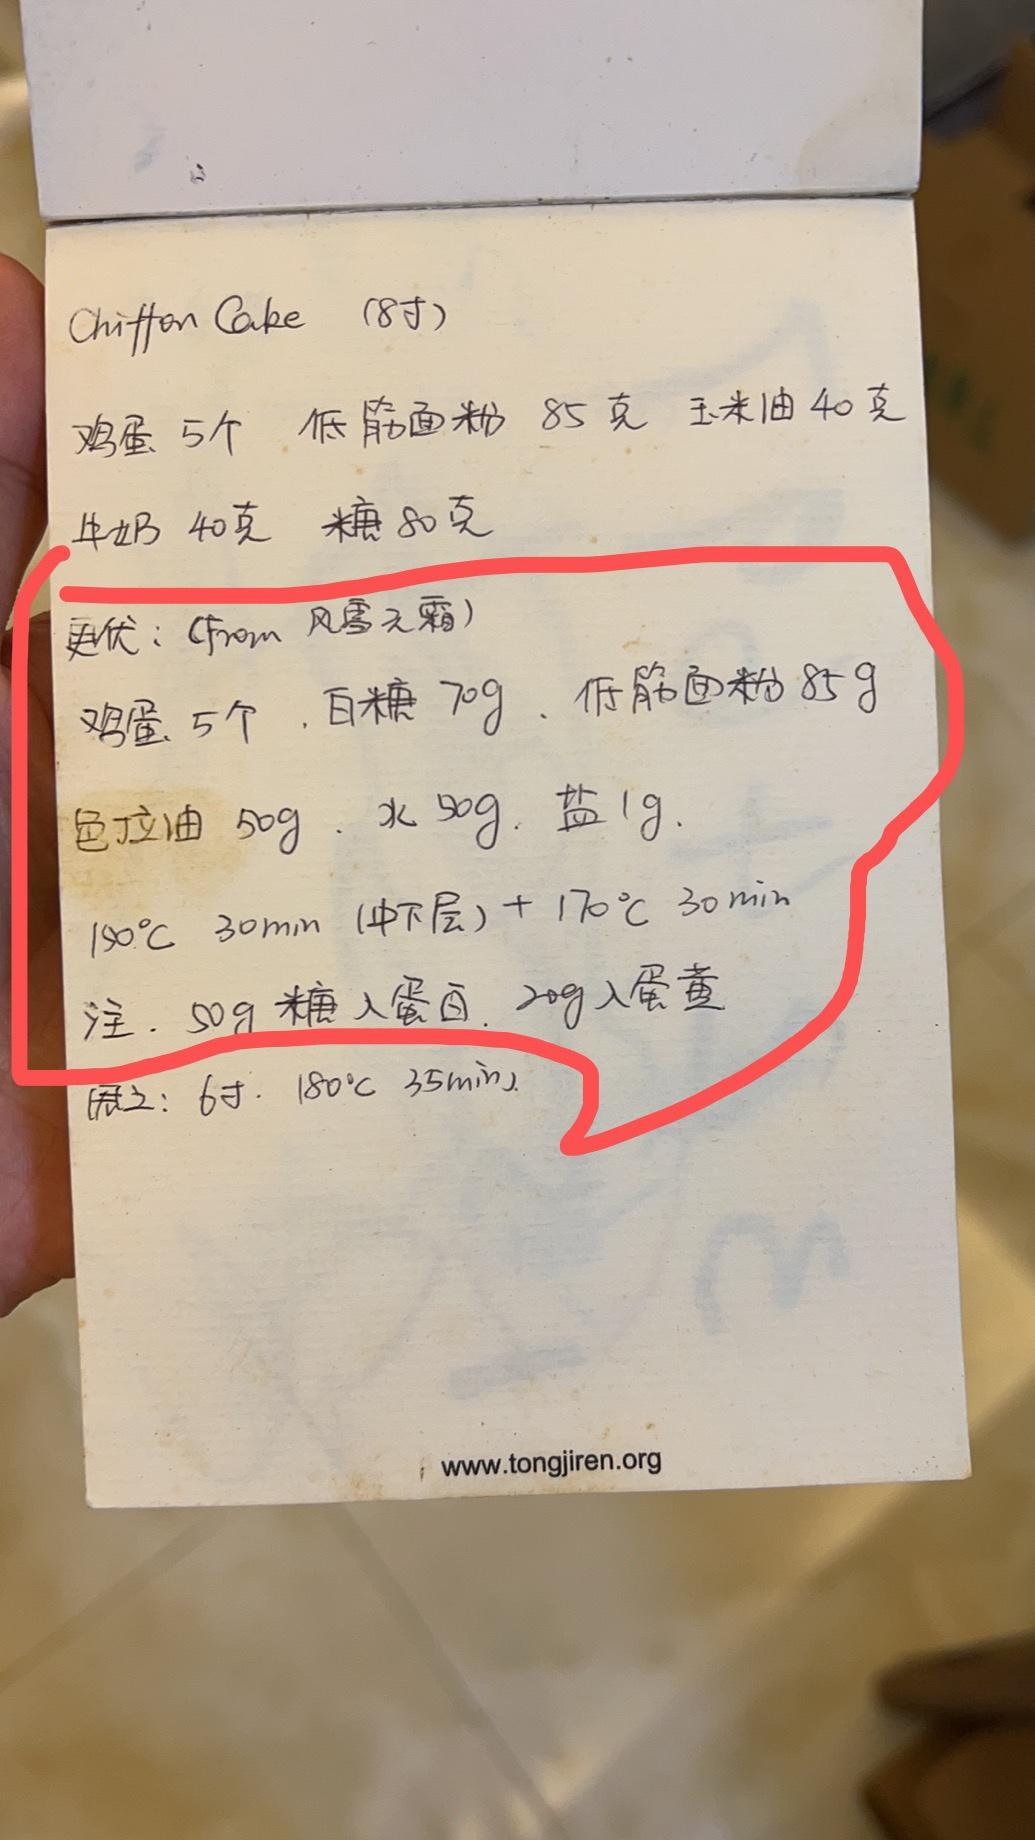 Chiffon Cake (8寸)
鸡蛋 5个 低筋面粉 85克 玉米油 40克
牛奶 40克 糖 80克
更优: (from 风雪无霜)
鸡蛋 5个 . 白糖 70g . 低筋面粉 85g
色拉油 50g . 水 50g . 盐 1g .
150℃ 30min (中下层) + 170℃ 30min
注 . 50g 糖入蛋白 . 20g 入蛋黄
6寸 . 180℃ 35min
www.tongjiren.org